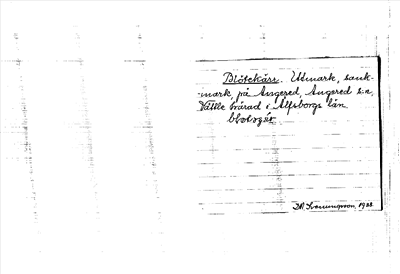 Blötekärr. Utmark, sank-
mark, på Angered, Angered sn,
Vättle härad i Älfsborgs län
D.A. Svenungsson, 1928